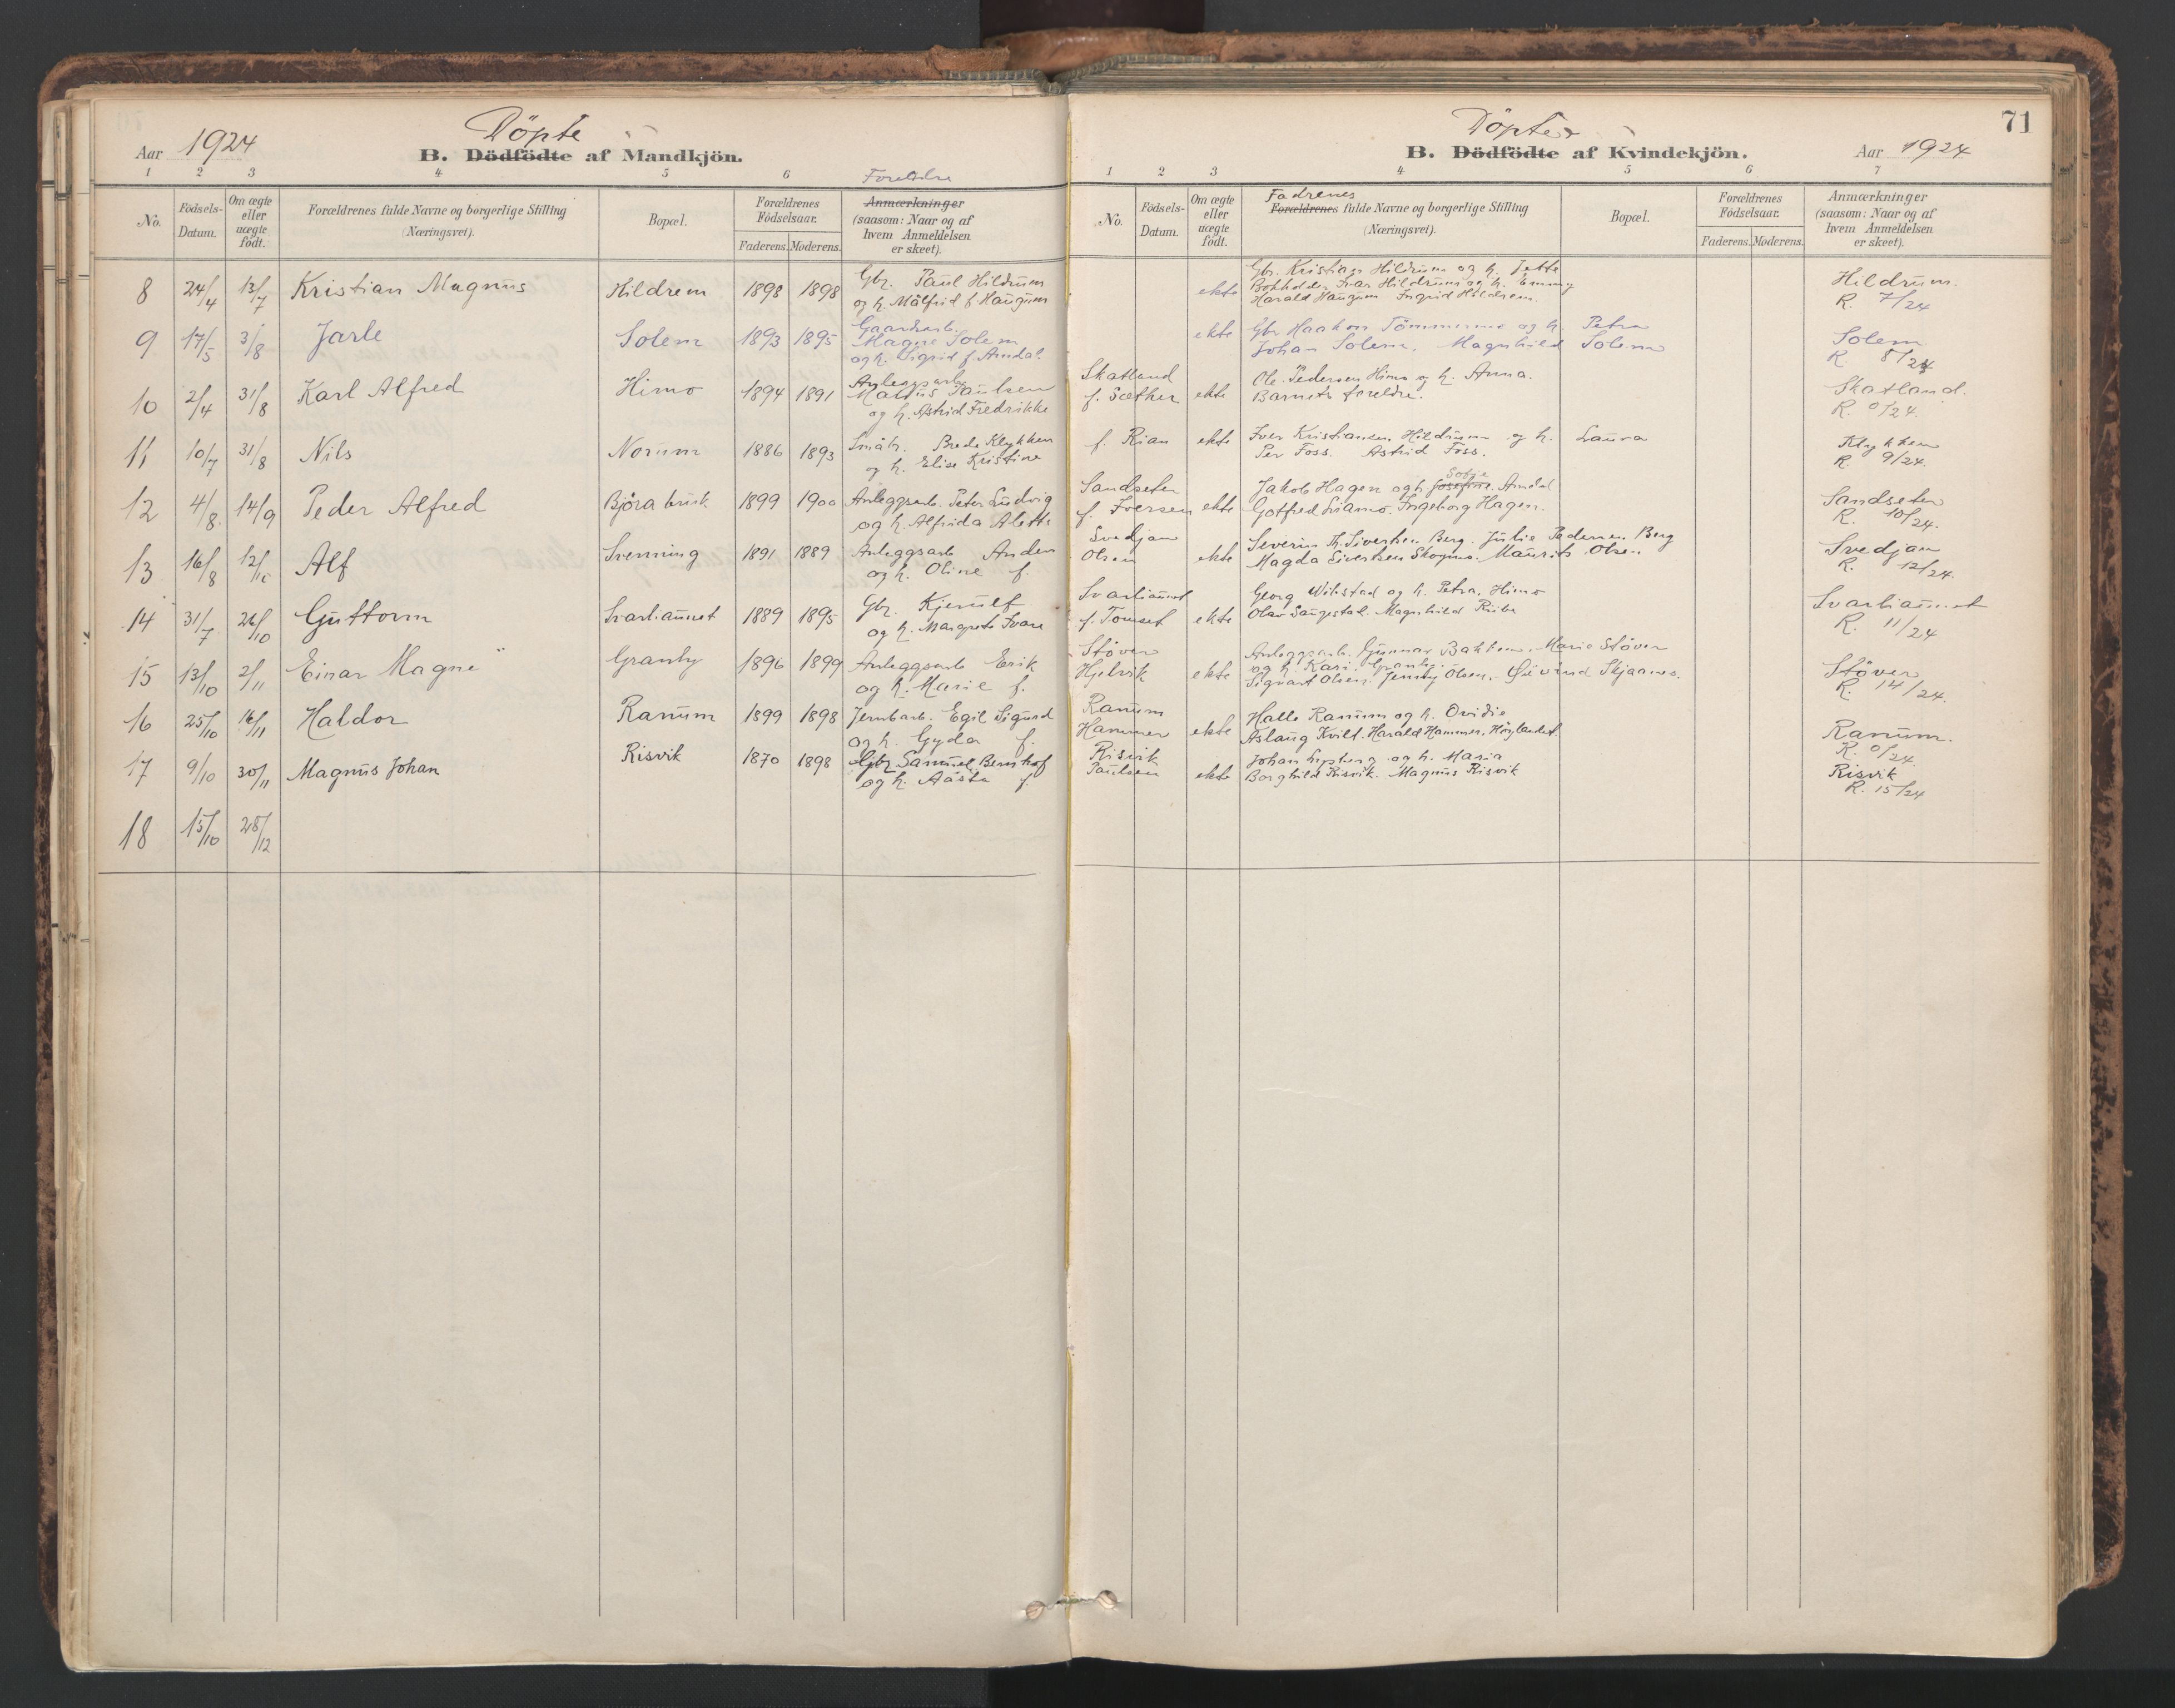 Aar 1924
Döpte
B. Dödfödte af Mandkjön.
1 2 3 4 5 6 Foreldre
No.
Födsels-Datum.
Om ægte eller uægte født.
Forældrenes fulde Navne og borgerlige Stilling (Næringsvei).
Bopæl.
Forældrenes Födselsaar.
Faderens. Moderens.
Anmærkninger (saasom: Naar og af hvem Anmeldelsen er skeet).
8 24/4 13/7 Kristian Magnus Hildrem 1898 1898 Gbr. Paul Hildrum
og h. Målfrid f. Haugum
9 17/5 3/8 Jarle Solem 1893 1895 Gaardsarb.
Magne Solem
og h. Sigrid f. Amdal
10 2/4 31/8 Karl Alfred Himo 1894 1891 Anleggsarb.
Paulsen
og h. Astrid Fredrikke
11 10/7 31/8 Nils Norum 1886 1893 Småbr. Brede Klykken
og h. Elise Kristine
12 4/8 14/9 Peder Alfred Björa bruk 1899 1900 Anleggsarb. Peter Ludvig
og h. Alfrida Alette
13 16/8 12/10 Alf Svenning 1891 1889 Anleggsarb. Anders
og h. Oline f.
14 31/7 26/10 Guttorm Svarliaunet 1889 1895 Gbr. Kjerulf
og h. Margrete Svare
15 13/10 2/11 Einar Magne Granby 1896 1899 Anleggsarb Erik
og h. Marie f.
16 25/10 16/11 Haldor Ranum 1899 1898 Jernbarb. Egil Sigurd
og h. Gyda f.
17 9/10 30/11 Magnus Johan Risvik 1870 1898 Gbr. Samuel Bernhof
og h. Aasta f.
18 15/10 28/12
71
Döpte
B. Dödfödte af Kvindekjön.
Aar 1924
1 2 3 4 5 6 7
No.
Födsels-Datum.
Om ægte eller uægte födt.
Fadrenes
Forældrenes fulde Navne og borgerlige Stilling (Næringsvei).
Bopæl.
Forældrenes Födselsaar.
Faderens. Moderens.
Anmærkninger (saasom: Naar og af hvem Anmeldelsen er skeet).
Gbr. Kristian Hildrum og h. Jette
ekte Bokholder Ivar Hildrum og h. Emmy
Harald Haugum Ingrid Hildrem.
Hildrum.
R. 7/24
ekte Gbr Haakon Tömmermo og h. Petra
Johan Solem. Magnhild Solem
Solem
R. 8/24
Skatland
f. Sæther ekte Ole Pedersen Himo og h. Anna.
Barnets foreldre.
Skatland.
R. 0/24.
f. Rian ekte Iver Kristiansen Hildrum og h. Laura
Per Foss. Astrid Foss.
Klykken
R. 9/24.
Sandseter
f. Iversen ekte Jakob Hagen og h. Josefine Sofie. Amdal
Gotfred Sviamo. Ingeborg Hagen.
Sandseter
R. 10/24.
Svedjan
Olsen ekte Severin Th. Sivertsen Berg. Julie Pedersen Berg
Magda Sivertsen Skogmo. Maurits Olsen
Svedjan
R. 12/24.
Svarliaunet
f. Tomset ekte Georg Wikstad og h. Petra, Himo
Olav Saugestad. Magnhild
Svarliaunet
R. 11/24
Stöver
Hjelvik ekte Anleggsarb. Gunnar Bakken. Marie Stöver
og h. Kari. Granby.
Sigvart Olsen. Jenny Olsen. Öivind Skjaanes.
Stöver
R. 14/24.
Ranum
Hammer ekte Halle Ranum og h. Ovidie
Aslaug Kvilt. Harald Hammer, Höylandet.
Ranum.
R. 0/24.
Risvik
Paulsen ekte Johan og h. Maria
Borghild Risvik. Magnus Risvik
Risvik
R. 15/24